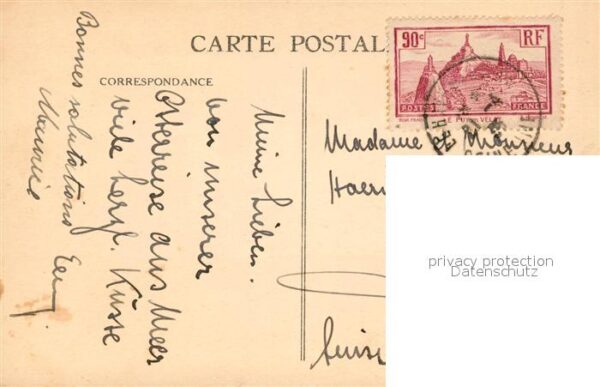 CARTE POSTALE
CORRESPONDANCE
90c RF
POSTES FRANCE
LE PUY EN VELAY
Meine Lieben.
von unserer
Osterreise ans Meer
viele herzl. Küsse
Bonnes salutations
Maurice
Madame & Monsieur
Haeri
Suisse
privacy protection
Datenschutz